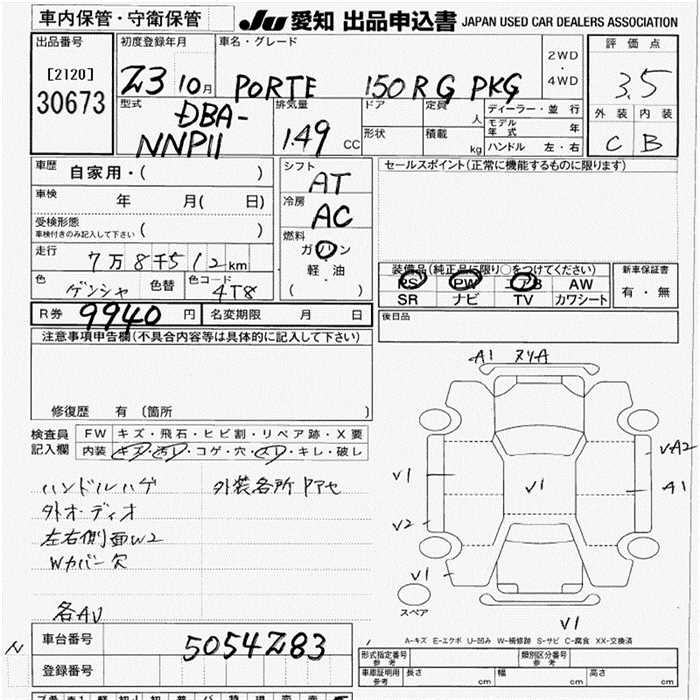 車内保管・守衛保管
JU 愛知 出品申込書 JAPAN USED CAR DEALERS ASSOCIATION
出品番号
[2120]
30673
初度登録年月
23 10月
車名・グレード
PORTE 150R G PKG
2WD
・
4WD
評価点
3.5
外装 内装
C B
型式
DBA-
NNP11
排気量
1.49 CC
ドア
定員 人
形状
積載 kg
ディーラー・並行
モデル年式 年
ハンドル 左・右
車歴 自家用・( )
車検 年 月( 日)
受検形態
車検付きのみ記入して下さい ( )
走行 7万8千512km
色 ゲンシャ 色替 色コード 4T8
シフト
AT
冷房
AC
燃料
ガソリン
軽・油
( )
セールスポイント(正常に機能するものに限ります)
装備品(純正品に限り○をつけてください)
PS PW エアB AW
SR ナビ TV カワシート
新車保証書
有・無
R券 9940 円 名変期限 月 日
後日品
注意事項申告欄(不具合内容等は具体的に記入して下さい)
修復歴 有 (箇所 )
検査員記入欄
FW キズ・飛石・ヒビ割・リペア跡・X要
内装 キズ・汚レ・コゲ・穴・スレ・キレ・破レ
ハンドルハゲ 外装各所Pアセ
外オーディオ
左右側面W2
Wカバー欠
各AU
A1 ヌリA
V1
V2
V1
V1
VA2
A1
V1
スペア
A-キズ E-エクボ U-凹み W-補修跡 S-サビ C-腐食 XX-交換済
車台番号 5054283
登録番号
形式指定番号 参考
類別区分番号 参考
車庫証明用 参考 長さ cm 幅 cm 高さ cm